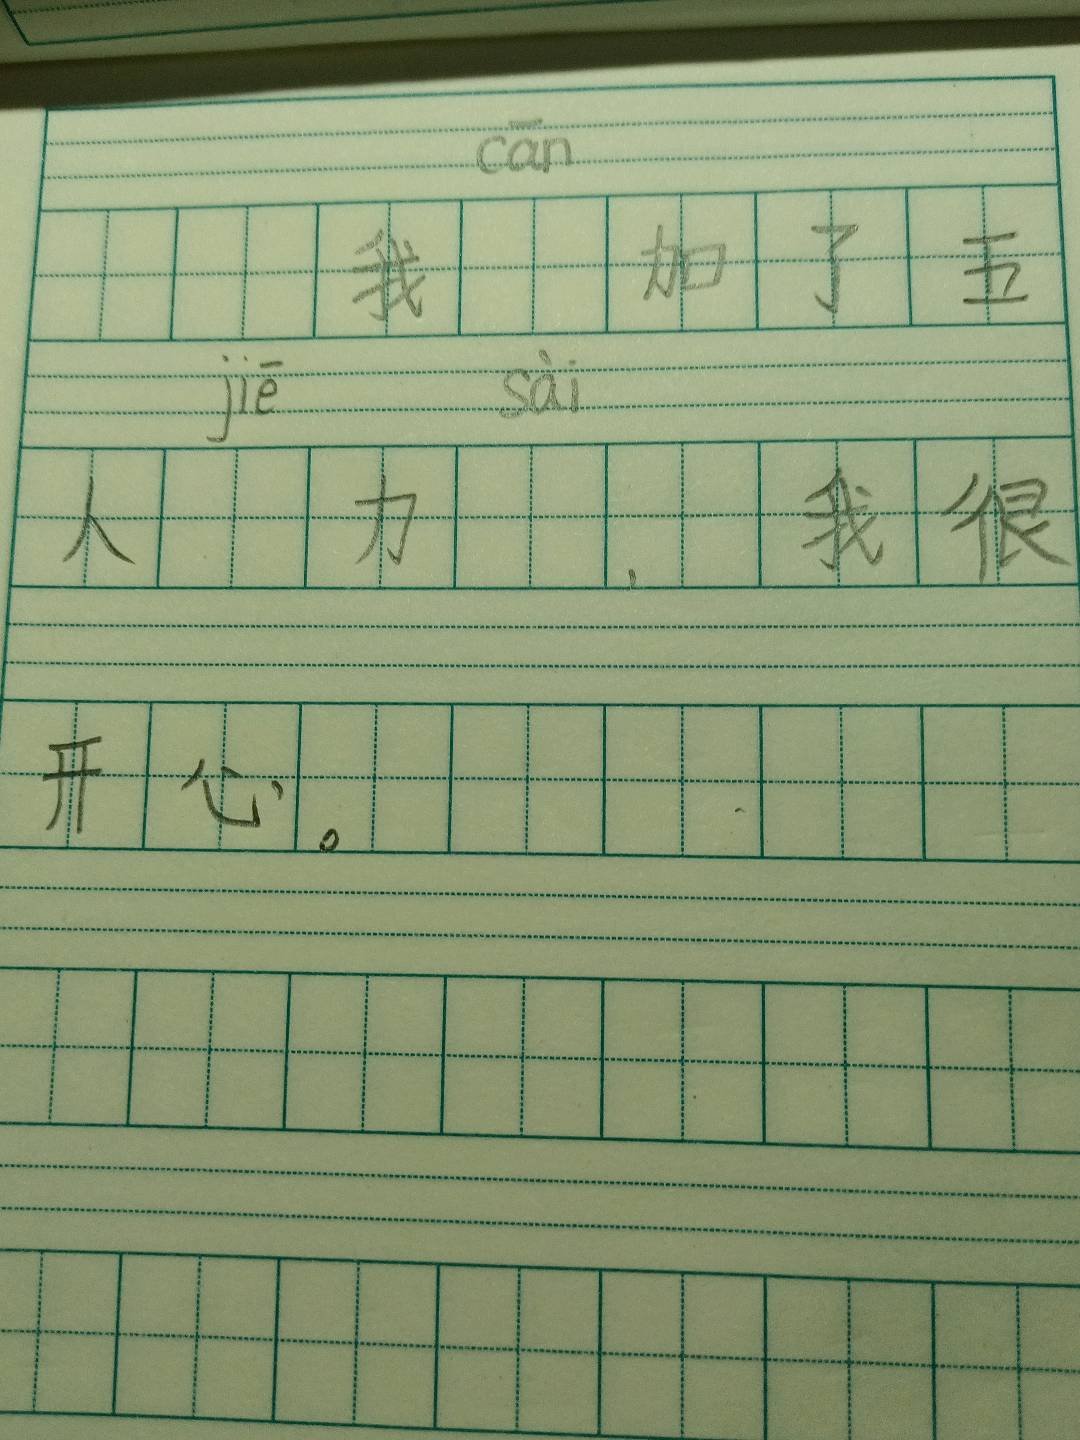 cān
我 加了五
jiē sài
人 力 ，我很
开心。